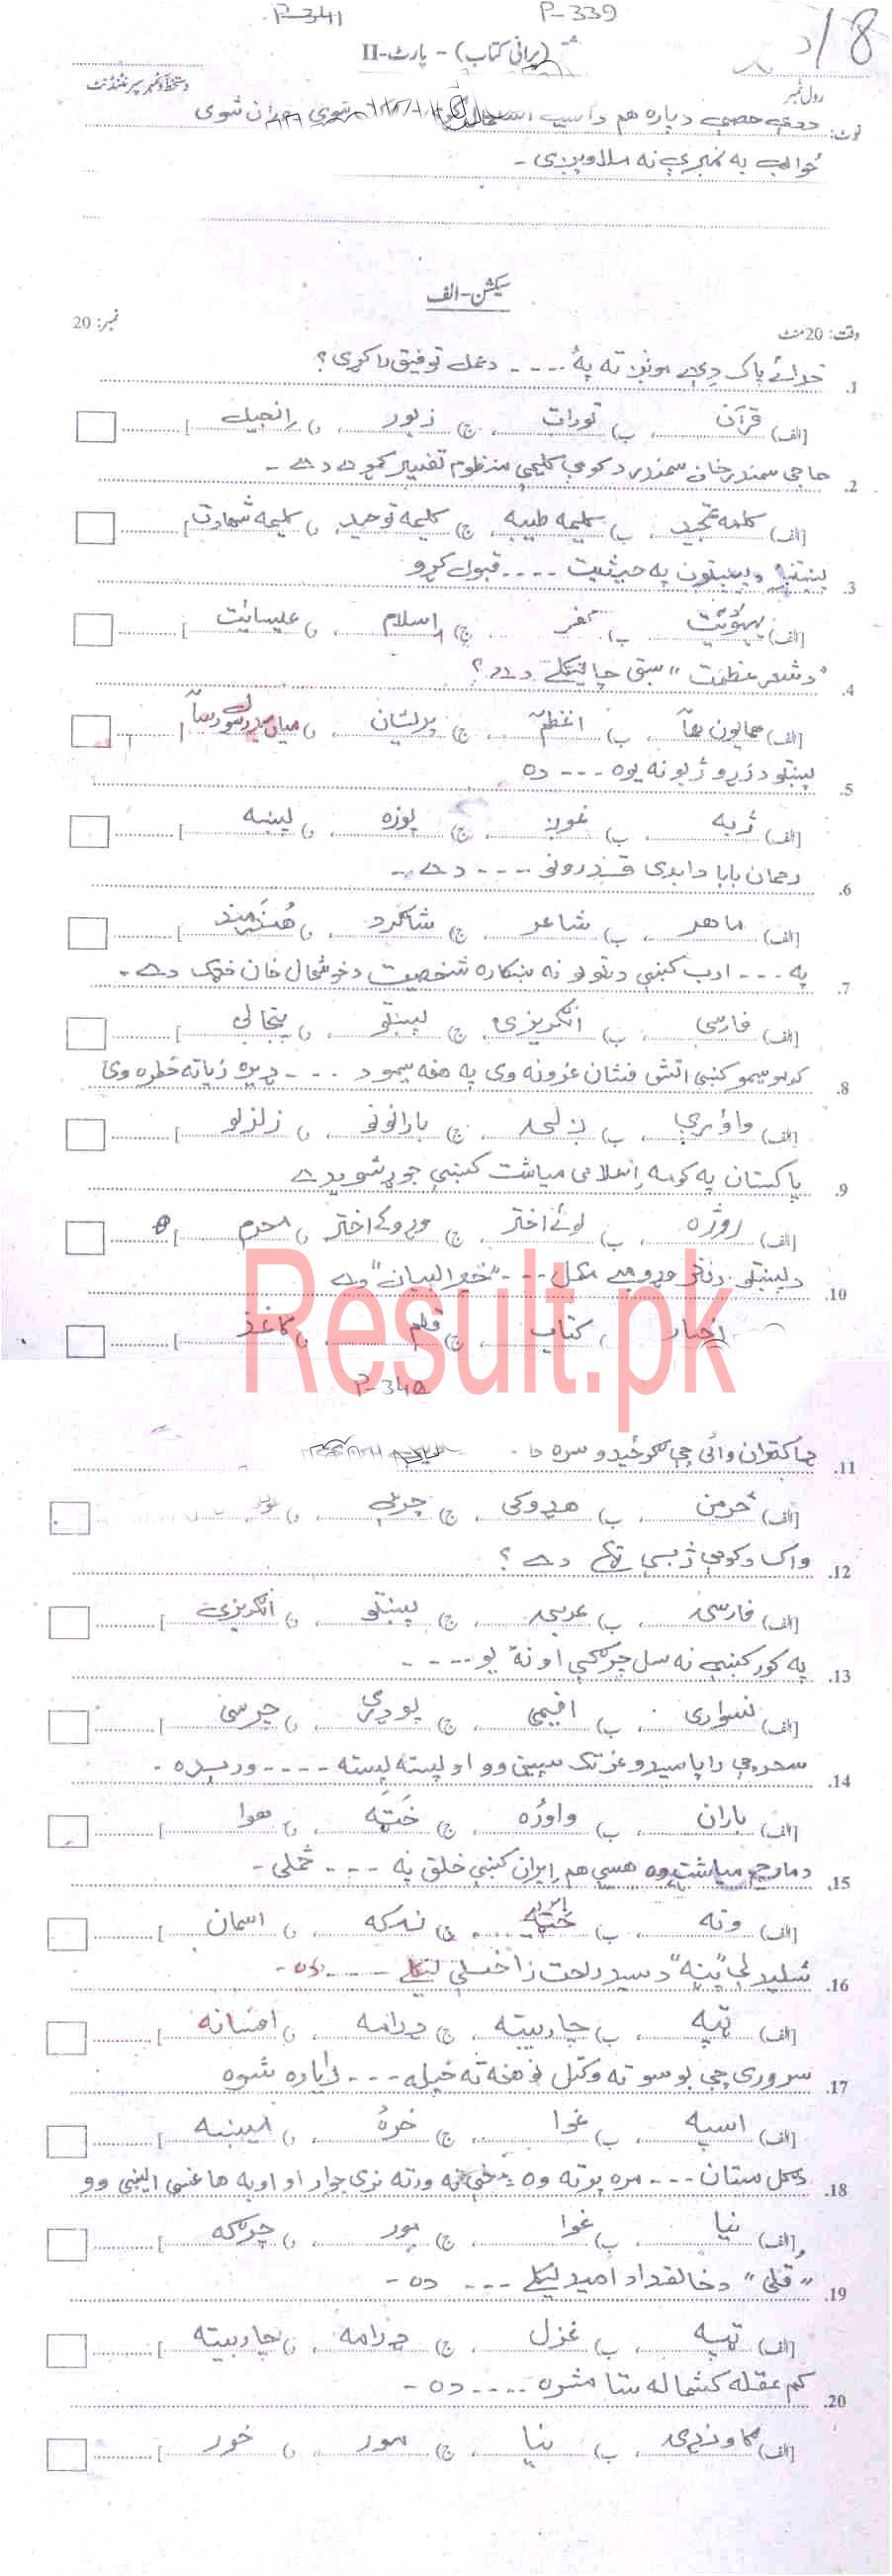 P-341 P-339
18/د
(پرانی کتاب) - پارٹ-II
دستخط و نمبر سپرنٹنڈنٹ
رول نمبر
نوٹ: ددې حصې دپاره هم دا
ځوابې به نمبرې نه ملاویږی -
سیکشن-الف
وقت: 20 منٹ نمبر: 20
1. خدائے پاک دِې مونږ ته پۀ ---- دعمل توفیق راکړی؟
[الف) قرآن ب) تورات ج) زبور د) انجیل]
2. حاجی سمندر خان سمندر د کومې کلیمې منظوم تفسیر کړے دے -
[الف) کلمه تمجید ب) کلیمه طیبه ج) کلیمه توحید د) کلیمه شهادت]
3. پښتنو په حیثیت ---- قبول کړو
[الف) یهودیت ب) کفر ج) اسلام د) عیسائیت]
4. "د شعر عظمت" سبق چا لیکلے دے؟
[الف) همایون هما ب) اعظم ج) پریشان د) میاں رسول رسا]
5. پښتو د زړو ژبو نه یوه --- ده
[الف) ژبه ب) غوږ ج) پوزه د) پښه]
6. رحمان بابا د ابدی قدرونو ---- دے -
[الف) ماهر ب) شاعر ج) شاګرد د) هُنرمند]
7. په --- ادب کښې د ټولو نه ښکاره شخصیت د خوشحال خان خټک دے -
[الف) فارسی ب) انګریزی ج) پښتو د) پنجابی]
8. کومو سیمو کښې اتش فشان غرونه وی په هغه سیمو د --- ډیره زیاته خطره وی
[الف) واؤرې ب) ږلۍ ج) بارانونو د) زلزلو]
9. پاکستان په کومه اِسلامی میاشت کښې جوړ شوے دے
[الف) روژه ب) لوئے اختر ج) وړوکے اختر د) محرم]
10. د پښتو د نثر وړومبے مکمل --- "خیرالبیان" دے
اخبار کتاب ج) قلم د) کاغذ
Result.pk
P-340
11. ډاکټران وائی چې سره
[الف) څرمن ب) هډوکی ج) چربی د)
12. واک د کومې ژبې ټکے دے؟
[الف) فارسۍ ب) عربۍ ج) پښتو د) انګریزۍ]
13. په کور کښې نه سل چرګې او نۀ یو ----
[الف) نسواری ب) افیمی ج) پوډری د) چرسی]
14. سحر چې راپاسیدو غرتک سپین وو او پسته پسته ---- وریده -
[الف) باران ب) واوُره ج) خَټَه د) هوا]
15. د مارچ میاشت وه هسې هم اِیران کښې خلق په --- څملی -
[الف) ونه ب) خټه ج) زمکه د) اسمان]
16. شلیدلې "پڼه" د سید راحت زاخیلی لیکلے ---- ده -
[الف) ټپه ب) چاربیته ج) ډرامه د) افسانه]
17. سروری چې بوسو ته وکتل نو هغه ته خپله --- رایاده شوه
[الف) اسپه ب) غوا ج) خرۀ د) میښه]
18. ګل ستان --- مړه پرته وه
[الف) نیا ب) غوا ج) مور د) چرګه]
19. "قُلی" د خالقداد امید لیکلے --- ده -
[الف) ټپه ب) غزل ج) ډرامه د) چاربیته]
20. کم عقله کشماله ستا مشره ---- ده -
[الف) ګاونډۍ ب) نیا ج) مور د) خور]